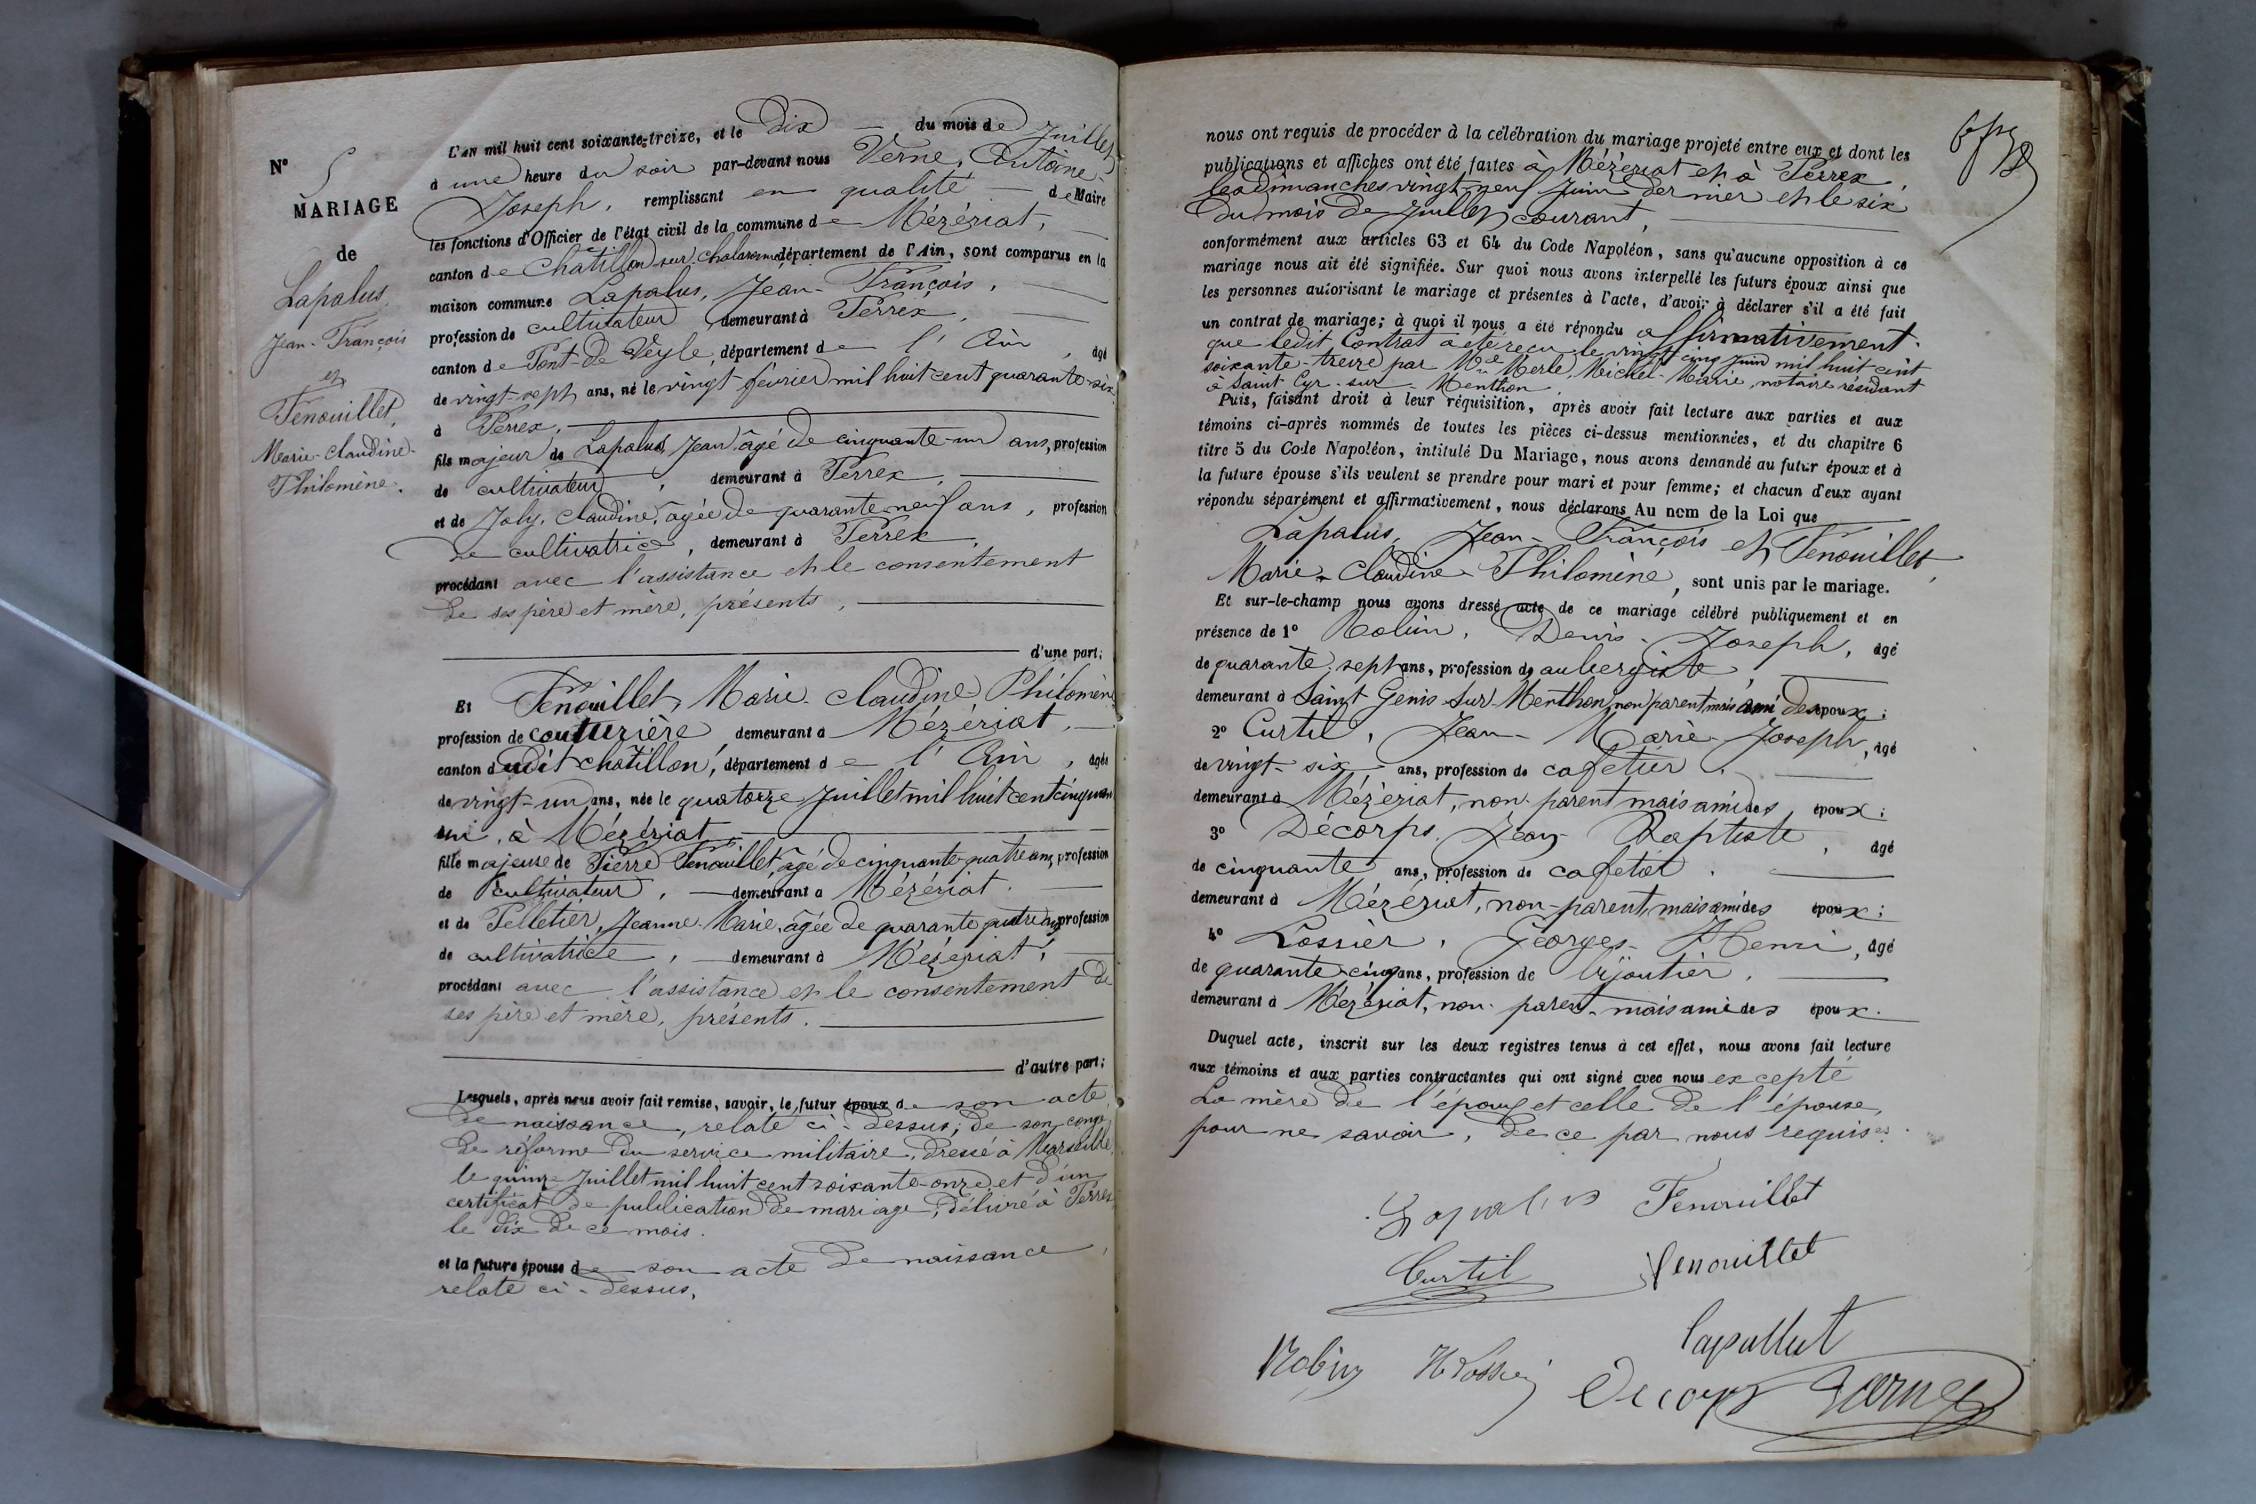 N° 5
MARIAGE
de
Lapalus,
Jean-François
et
Fenouillet,
Marie-Claudine-
Philomène.
L'an mil huit cent soixante-treize, et le Dix du mois de Juillet
à une heure du soir par-devant nous Verne, Antoine-
Joseph, remplissant en qualité de Maire
les fonctions d'Officier de l'état civil de la commune de Mézériat,
canton de Chatillon sur Chalaronne département de l'Ain, sont comparus en la
maison commune Lapalus, Jean-François,
profession de cultivateur demeurant à Perrex,
canton de Pont-de-Veyle, département de l'Ain, âgé
de vingt-sept ans, né le vingt février mil huit cent quarante-six
à Perrex,
fils majeur de Lapalus, Jean âgé de cinquante-un ans, profession
de cultivateur, demeurant à Perrex,
et de Joly, Claudine, âgée de quarante-neuf ans, profession
de cultivatrice, demeurant à Perrex,
procédant avec l'assistance et le consentement
de ses père et mère, présents,
d'une part;
Et Fenouillet, Marie-Claudine Philomène
profession de couturière demeurant à Mézériat,
canton dudit chatillon, département de l'Ain, âgée
de vingt-un ans, née le quatorze Juillet mil huit cent cinquan
un, à Mézériat,
fille majeure de Pierre Fenouillet, âgé de cinquante-quatre ans, profession
de cultivateur, demeurant à Mézériat.
et de Pelletier, Jeanne-Marie, âgée de quarante quatre ans, profession
de cultivatrice, demeurant à Mézériat,
procédant avec l'assistance et le consentement de
ses père et mère, présents.
d'autre part;
Lesquels, après nous avoir fait remise, savoir, le futur époux de son acte
de naissance, relaté ci-dessus; de son congé
de réforme du service militaire, dressé à Marseille,
le quinze Juillet mil huit cent soixante-onze, et d'un
certificat de publication de mariage, délivré à Perrex
le dix de ce mois.
et la future épouse de son acte de naissance,
relaté ci-dessus,
nous ont requis de procéder à la célébration du mariage projeté entre eux et dont les
publications et affiches ont été faites à Mézériat et à Perrex,
les dimanches vingt-neuf Juin dernier et le six
du mois de Juillet courant,
conformément aux articles 63 et 64 du Code Napoléon, sans qu'aucune opposition à ce
mariage nous ait été signifiée. Sur quoi nous avons interpellé les futurs époux ainsi que
les personnes autorisant le mariage et présentes à l'acte, d'avoir à déclarer s'il a été fait
un contrat de mariage; à quoi il nous a été répondu affirmativement.
que ledit Contrat a été reçu le vingt cinq Juin mil huit cent
soixante-treize par Me Merle, Michel-Marie, notaire résidant
à Saint Cyr-sur-Menthon
Puis, faisant droit à leur réquisition, après avoir fait lecture aux parties et aux
témoins ci-après nommés de toutes les pièces ci-dessus mentionnées, et du chapitre 6
titre 5 du Code Napoléon, intitulé Du Mariage, nous avons demandé au futur époux et à
la future épouse s'ils veulent se prendre pour mari et pour femme; et chacun d'eux ayant
répondu séparément et affirmativement, nous déclarons Au nom de la Loi que
Lapalus, Jean-François et Fenouillet,
Marie-Claudine-Philomène, sont unis par le mariage.
Et sur-le-champ nous avons dressé acte de ce mariage célébré publiquement et en
présence de 1° Robin, Denis-Joseph, âgé
de quarante-sept ans, profession de aubergiste,
demeurant à Saint Genis sur Menthon, non parent mais ami des époux;
2° Curtil, Jean-Marie-Joseph, âgé
de vingt-six ans, profession de cafetier,
demeurant à Mézériat, non-parent mais ami des époux;
3° Décorps, Jean Baptiste, âgé
de cinquante ans, profession de cafetier.
demeurant à Mézériat, non-parent, mais ami des époux;
4° Lossier, Georges-Henri, âgé
de quarante-cinq ans, profession de bijoutier,
demeurant à Mézériat, non-parent-mais ami des époux.
Duquel acte, inscrit sur les deux registres tenus à cet effet, nous avons fait lecture
aux témoins et aux parties contractantes qui ont signé avec nous excepté
La mère de l'époux et celle de l'épouse,
pour ne savoir, de ce par nous requises.
Lapalus Fenouillet
Curtil Fenouillet
Lapallut
Robin H Lossier Decorps Verne